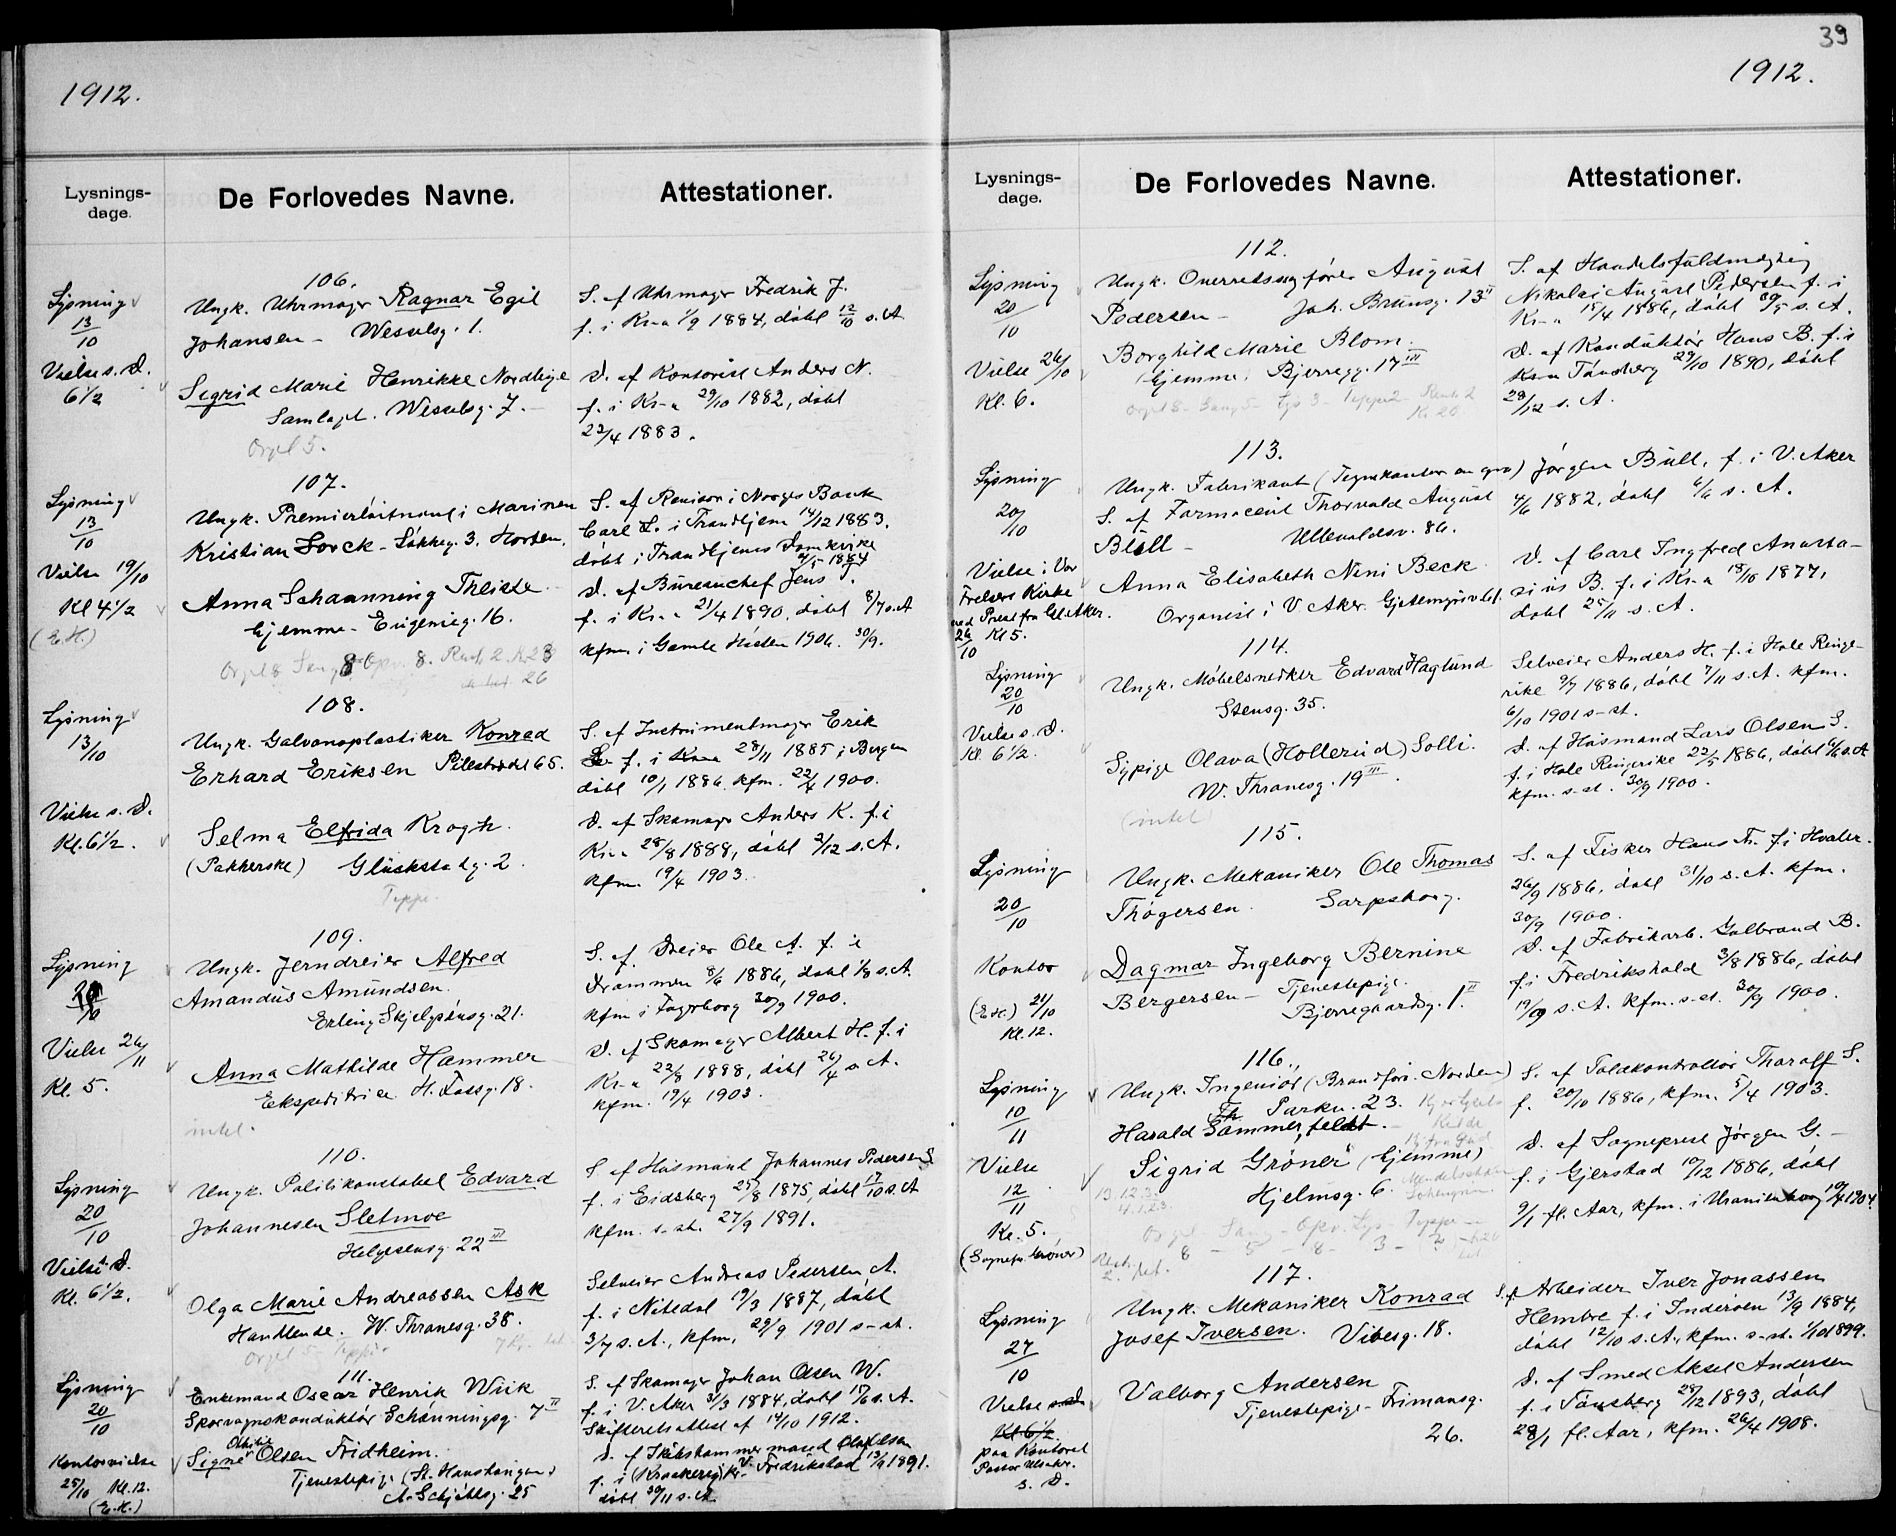 39
1912.
Lysnings-
dage.
De Forlovedes Navne.
Attestationer.
106.
Lysning
13/10
Vielse s. D.
6 1/2
Ungk. Uhrmager Ragnar Egil
Johansen - Wesselsg. 1.
Sigrid Marie Henrikke Nordbye
Samlagd. Wesselsg. 7.-
Orgel 5.
S. af Uhrmager Fredrik J.
f. i Kr-a 1/9 1884, døbt 12/10 s. A.
D. af Kontorist Anders N.
f. i Kr-a 29/10 1882, døbt
22/4 1883.
107.
Lysning
13/10
Vielse 19/10
Kl 4 1/2
(E. H.)
Ungk. Premierløitnant i Marinen
Kristian Lorck - Løkkeg. 3. Horten.
Anna Schaanning
hjemme - Eugenieg. 16.
Orgel 8 Sang 8 Opv. 8.
26
S. af Revisor i Norges Bank
Carl L. i Trondhjem 14/12 1883.
døbt i Trondhjems Domkirke
4/5 1884
D. af Bureauchef Jens
f. i Kr-a 21/4 1890, døbt 8/7 s. A
kfm. i Gamle 1906. 30/9.
108.
Lysning
13/10
Vielse s. D.
Kl. 6 1/2.
Ungk. Galvanoplastiker Konrad
Erhard Eriksen Pilestrædet 65.
Selma Elfrida Krogh.
(Pakkerske) Glückstadg. 2.
Teppe.
S. af Instrumentmager Erik
E. f. i 28/11 1885 i Bergen
døbt 10/1 1886. kfm. 22/4 1900.
D. af Skomager Anders K. f. i
Kr-a 28/8 1888, døbt 2/12 s. A.
kfm. 19/4 1903.
109.
Lysning
20/10
Vielse 26/11
Kl. 5.
Ungk. Jerndreier Alfred
Amandus Amundsen.
Erling Skjalgsønsg. 21.
Anna Mathilde Hammer
Ekspeditrice H. Fossg. 18.
intet.
S. af Dreier Ole A. f. i
Drammen 8/6 1886, døbt 1/8 s. A.
kfm i Fagerborg 30/9 1900.
D. af Skomager Albert H. f. i
Kr-a 22/8 1888, døbt 26/4 s. A.
kfm. 19/4 1903.
110.
Lysning
20/10
Vielse s. D.
Kl. 6 1/2.
Ungk. Politikonstabel Edvard
Johannesen Sletmoe
Helgesensg. 22 III
Olga Marie Andreassen Ask
Handlende. W. Thranesg. 38.
Orgel 5 - Teppe
S af Husmand Johannes Pedersen S
f. i Eidsberg 25/8 1875, døbt 17/10 s. A
kfm. s-st. 27/9 1891.
Selveier Andreas Pedersen A.
f. i Nitedal 19/3 1887, døbt
3/7 s. A., kfm. 29/9 1901 s-st.
111.
Lysning
20/10
Kontorvielse
25/10 Kl. 12.
(E. H.)
Enkemand Oscar Henrik Wiik
Sporvognskonduktør Schønningsg. 7 II
Othilie
Signe Olsen Fridheim.
Tjenestepige (St. Hanshaugen)
A. Schjøttsg. 25
S. af Skomager Johan Olsen W.
f. i V. Aker 31/3 1884, døbt 15/6 s. A.
Skifteretsattest af 14/10 1912.
D. af Skibstømmermand Olaf Olsen
f. i (Kraakerøy) Fredrikstad 13/9 1891.
døbt 30/11 s. A
1912.
Lysnings-
dage.
De Forlovedes Navne.
Attestationer.
112.
Lysning
20/10
Vielse 26/10
Kl. 6.
Ungk. Overretssagfører August
Pedersen - Joh. Brunsg. 13 II
Borghild Marie Blom.
hjemme. Bjerregg. 17 III
Orgel 8 - Sang 5 - Lys 3 - Teppe 2
S. af Handelsfuldmægtig
Nikolai August Pedersen f. i
Kr-a 15/4 1886, døbt 30/5 s. A.
D. af Konduktør Hans B. f. i
Tønsberg 29/10 1890, døbt
28/12 s. A.
113.
Lysning
20/10
Vielse i Vor
Frelsers Kirke
ved Prest fra Gl. Aker.
26/10 Kl 5.
Ungk. Fabrikant (Tegnekontor en gros)
S. af Farmaceut Thorvald August
Büll - Ullevoldsv. 86.
Anna Elisabeth Nini Beck
Organist i V Aker.
Jørgen Büll, f. i V. Aker
4/6 1882, døbt 6/6 s. A.
D. af Carl Ingfred Anasta-
sius B. f. i Kr-a 18/10 1877,
døbt 25/11 s. A.
114.
Lysning
20/10
Vielse s. D.
Kl. 6 1/2.
Ungk. Møbelsnedker Edvard Haglund
Stensg. 35.
Sypige Olava (Hollerud) Solli.
W. Thranesg. 19 III.
(intet)
Selveier Anders H. f. i Hole Ringe-
rike 9/7 1886, døbt 7/11 s. A. kfm.
6/10 1901 s-st.
D. af Husmand Lars Olsen S.
f. i Hole Ringerike 22/5 1886, døbt 6/6 s. A
kfm. s-st. 30/9 1900.
115.
Lysning
20/10
Kontor
(E. H.) 21/10
Kl. 12.
Ungk. Mekaniker Ole Thomas
Thøgersen. Sarpsborg.
Dagmar Ingeborg Bernine
Bergersen - Tjenestepige.
Bjerregaardsg. 1 II
S. af Fisker Hans Th. f. i Hvaler.
26/9 1886, døbt 31/10 s. A. kfm.
30/9 1900.
D. af Fabrikarb. Gulbrand B.
f. i Fredrikshald 3/8 1886, døbt
19/9 s. A. kfm. s-st. 30/9 1900.
116.
Lysning
10/11
Vielse
12/11
Kl. 5.
(Sognepr. Grøner)
Ungk. Ingeniør (Brandfors. Norden)
Th Parkv. 23.
Harald Sommerfeldt. -
Sigrid Grøner (hjemme)
Hjelmsg. 6.
Orgel Sang - Opv. Lys Teppe
8 - 5 - 8 - 3 - 2
S. af Toldkontrollør Tharalf S.
f. 20/10 1886, kfm. 5/4 1903.
D. af Sogneprest Jørgen G. -
f. i Gjerstad 19/12 1886, døbt
9/1 fl. Aar, kfm. i Uranienborg 10/4 1904.
117.
Lysning
27/10
Vielse
Kl 6 1/2.
paa Kontoret
Pastor
s. D.
Ungk. Mekaniker Konrad
Josef Iversen. Vibesg. 18.
Valborg Andersen
Tjenestepige - Frimansg.
26.
S. af Arbeider Iver Jonassen
Hembre f. i Inderøen 13/9 1884,
døbt 12/10 s. A., kfm. s-st. 1/10 1899.
D. af Smed Aksel Andersen
f. i Tønsberg 28/12 1893, døbt
28/1 fl. Aar, kfm. 26/4 1908.